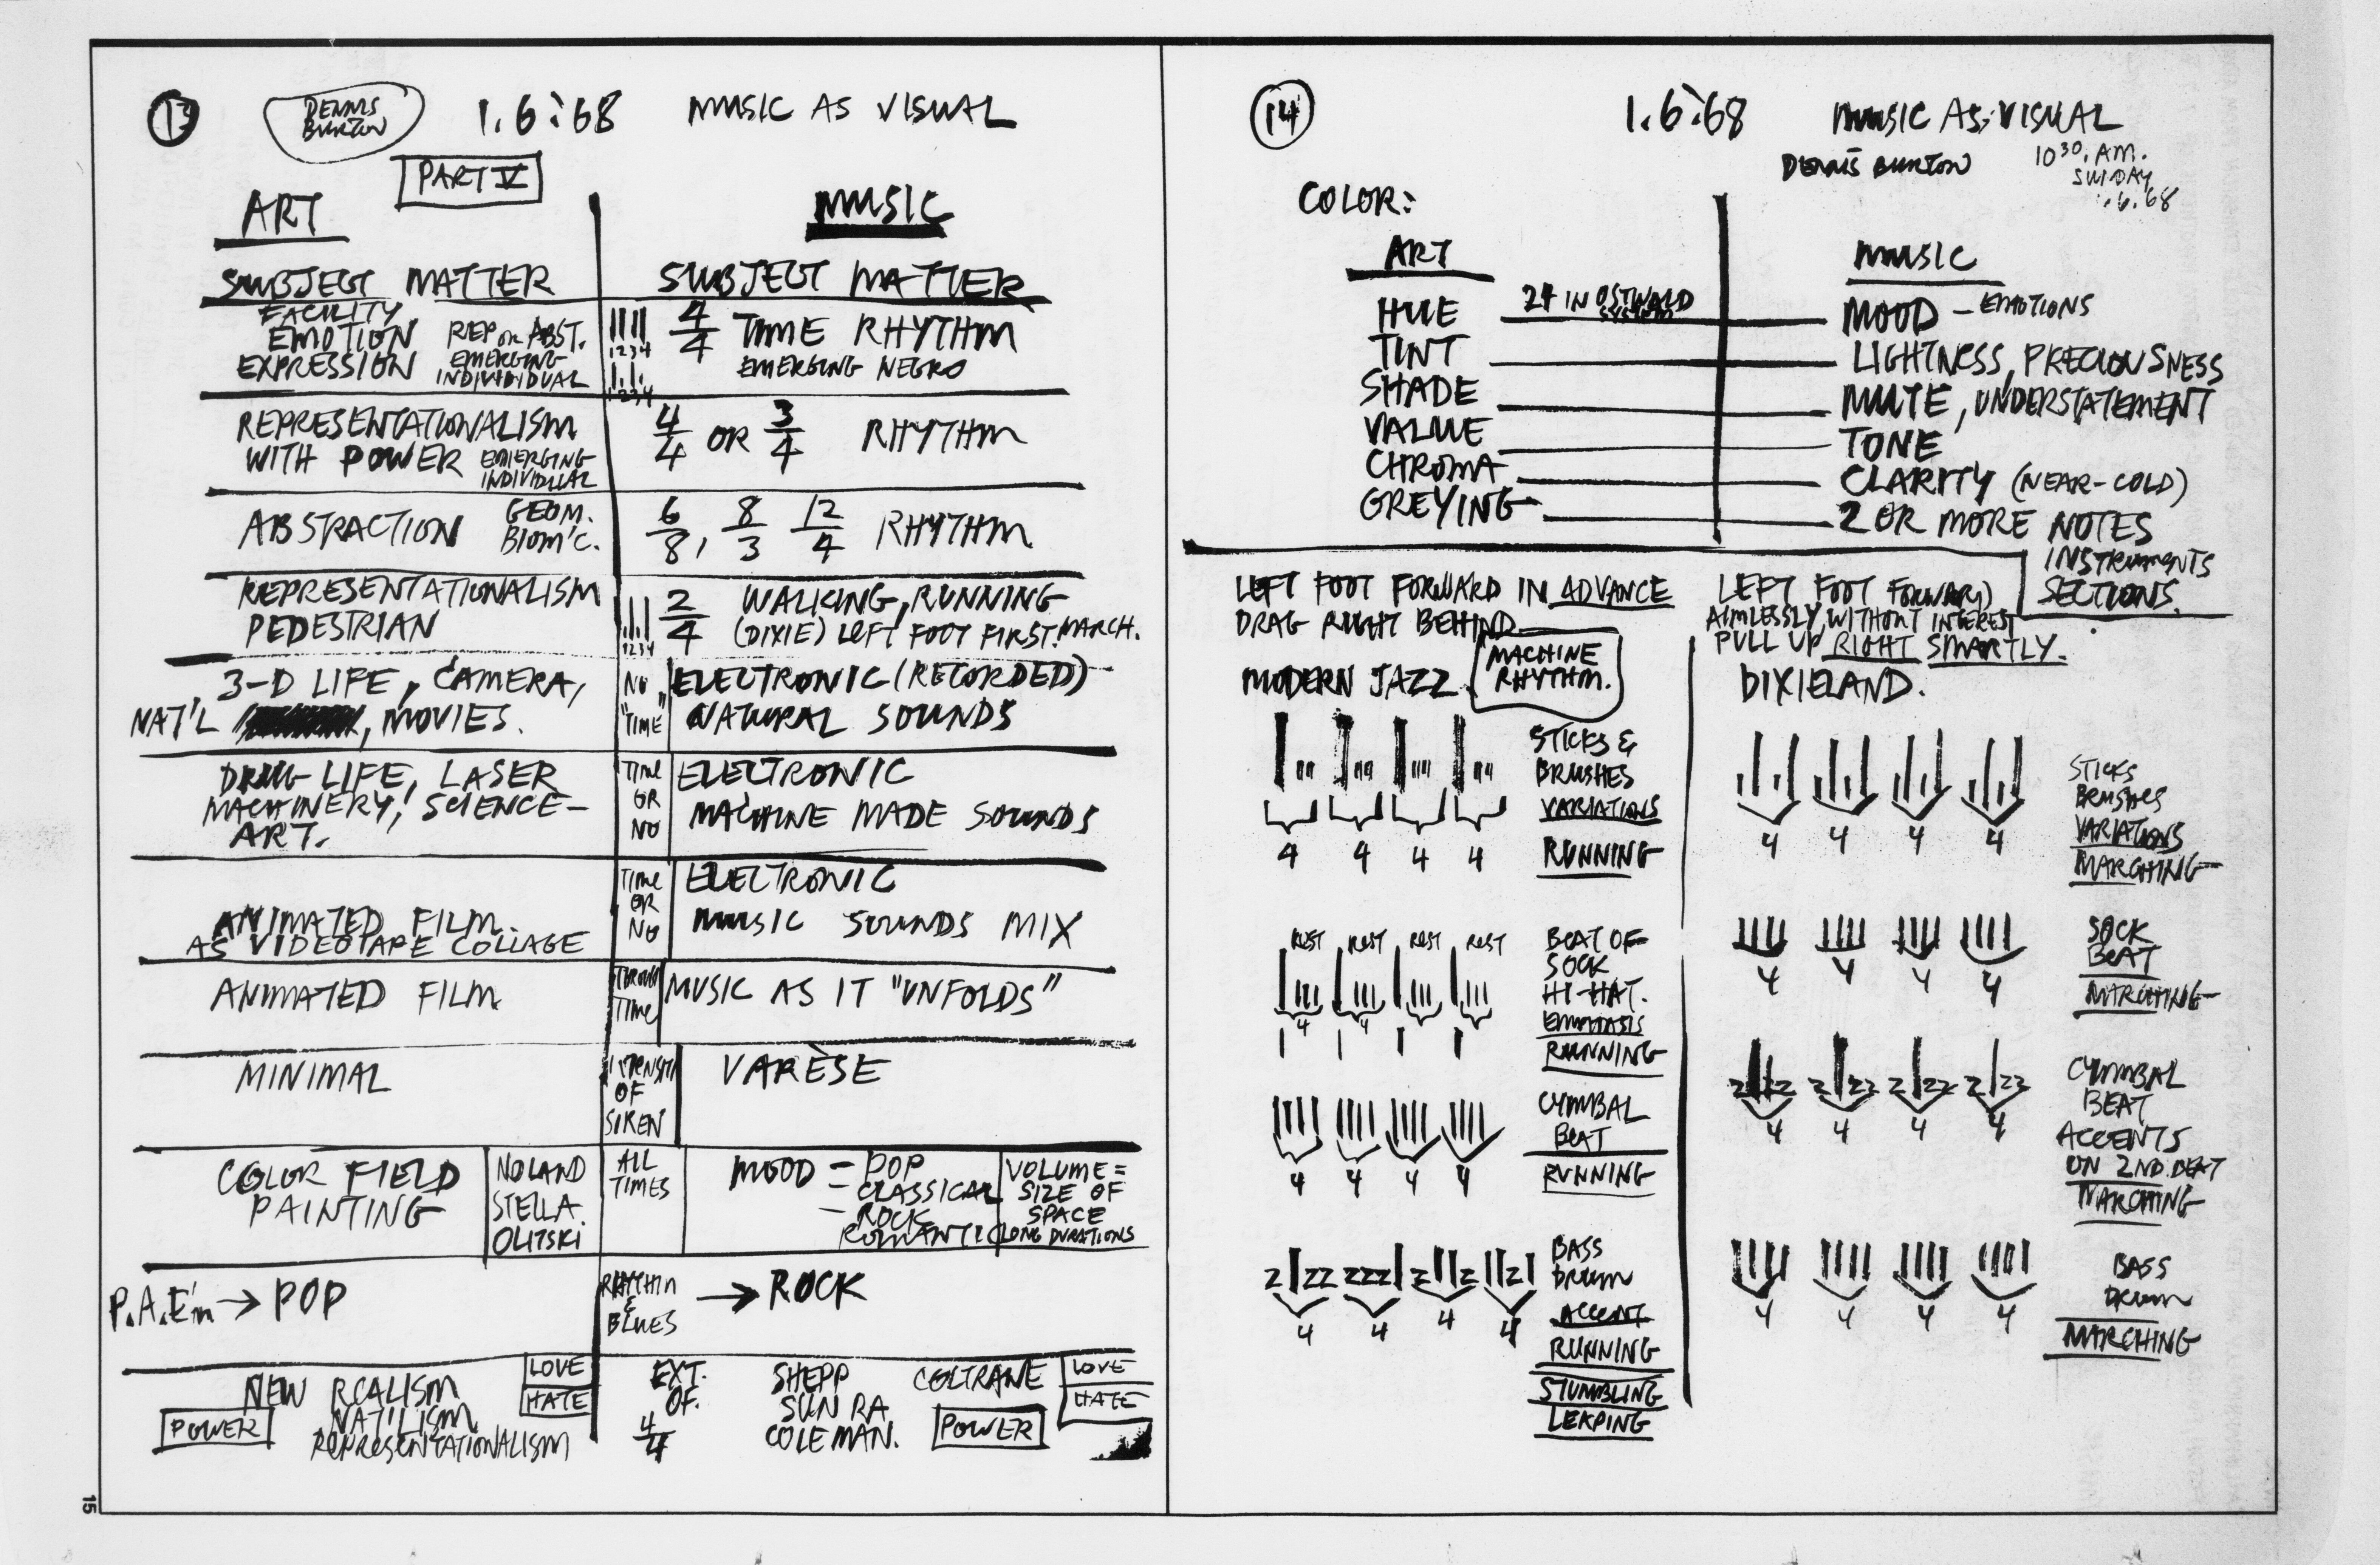 13
DENNIS
BURTON
1.6:68
MUSIC AS VISUAL
PART IV
ART
MUSIC
SUBJECT MATTER
SUBJECT MATTER
FACILITY
EMOTION
EXPRESSION
REP or ABST.
EMERGING
INDIVIDUAL
1234
1234
4/4 TIME RHYTHM
EMERGING NEGRO
REPRESENTATIONALISM
WITH POWER EMERGING
INDIVIDUAL
4/4 OR 3/4 RHYTHM
ABSTRACTION GEOM.
BIOM'C.
6/8, 8/3 12/4 RHYTHM
REPRESENTATIONALISM
PEDESTRIAN
1234
2/4 WALKING, RUNNING
(DIXIE) LEFT FOOT FIRST. MARCH.
3-D LIFE, CAMERA,
NAT'L , MOVIES.
NO
"TIME"
ELECTRONIC (RECORDED)
NATURAL SOUNDS
DRUG LIFE, LASER
MACHINERY, SCIENCE-
ART.
TIME
OR
NO
ELECTRONIC
MACHINE MADE SOUNDS
ANIMATED FILM.
AS VIDEOTAPE COLLAGE
TIME
OR
NO
ELECTRONIC
MUSIC SOUNDS MIX
ANIMATED FILM
THROUGH
TIME
MUSIC AS IT "UNFOLDS"
MINIMAL
OF
SIREN
VARÈSE
COLOR FIELD
PAINTING
NOLAND
STELLA.
OLITSKI
ALL
TIMES
MOOD = POP
CLASSICAL
- ROCK
ROMANTIC
VOLUME =
SIZE OF
SPACE
LONG DURATIONS
P.A.E'm → POP
RHYTHM
&
BLUES
→ ROCK
NEW REALISM
NAT'LISM
REPRESENTATIONALISM
POWER
LOVE
HATE
EXT.
OF.
4/4
SHEPP
SUN RA
COLEMAN.
COLTRANE
POWER
LOVE
HATE
15
14
1.6:68
MUSIC AS:VISUAL
DENNIS BURTON
10 30. AM.
SUNDAY
.6.68
COLOR:
ART
MUSIC
HUE 24 IN OSTWALD
SYSTEM
MOOD - EMOTIONS
TINT LIGHTNESS, PRECIOUSNESS
SHADE MUTE, UNDERSTATEMENT
VALUE TONE
CHROMA CLARITY (NEAR-COLD)
GREYING 2 OR MORE NOTES
INSTRUMENTS
SECTIONS.
LEFT FOOT FORWARD IN ADVANCE
DRAG RIGHT BEHIND
MODERN JAZZ
MACHINE
RHYTHM.
LEFT FOOT FORWARD
AIMLESSLY, WITHOUT INTEREST
PULL UP RIGHT SMARTLY.
DIXIELAND.
4 4 4 4
STICKS &
BRUSHES
VARIATIONS
RUNNING
4 4 4 4
STICKS
BRUSHES
VARIATIONS
MARCHING
REST REST REST REST
4 4
BEAT OF
SOCK
HI-HAT.
EMPHASIS
RUNNING
4 4 4 4
SOCK
BEAT
MARCHING
4 4 4 4
CYMBAL
BEAT
RUNNING
Z Z Z ZZ Z ZZ Z ZZ
4 4 4 4
CYMBAL
BEAT
ACCENTS
ON 2ND. BEAT
MARCHING
Z|ZZ ZZZ| Z||Z ||Z|
4 4 4 4
BASS
DRUM
ACCENT
RUNNING
STUMBLING
LEAPING
4 4 4 4
BASS
DRUM
MARCHING